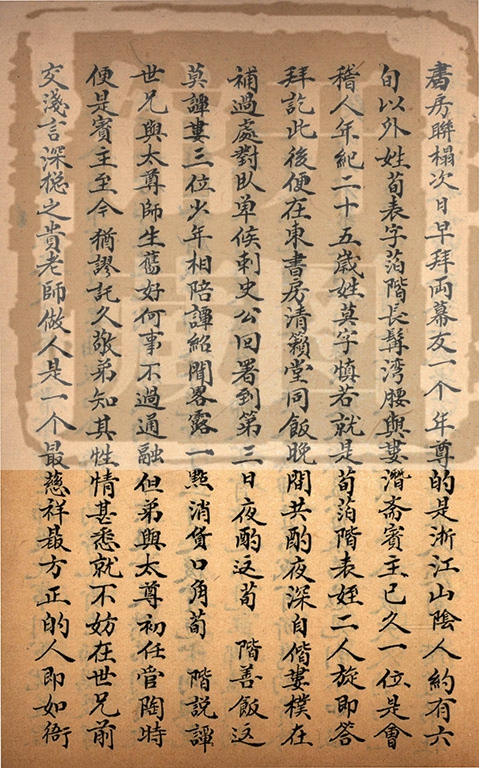 書房聯榻次日早拜両幕友一个年尊的是浙江山陰人約有六
旬以外姓荀表字萡階長髯湾腰與婁潛斎賓主已久一位是會
稽人年紀二十五歳姓莫字慎若就是荀萡階表姪二人旋即答
拜訖此後便在東書房清籟堂同飯晚間共酌夜深自偕婁樸在
補過處對臥单候刺史公回署到第三日夜酌这荀 階善飯这
莫譁婁三位少年相陪譚紹聞畧露一㸃消貨口角荀 階説譚
世兄與太尊師生舊好何事不過通融但弟與太尊初任管陶時
便是賓主至今猶謬託久敬弟知其性情甚悉就不妨在世兄前
交淺言深穏之貴老師做人是一个最慈祥最方正的人即如衙